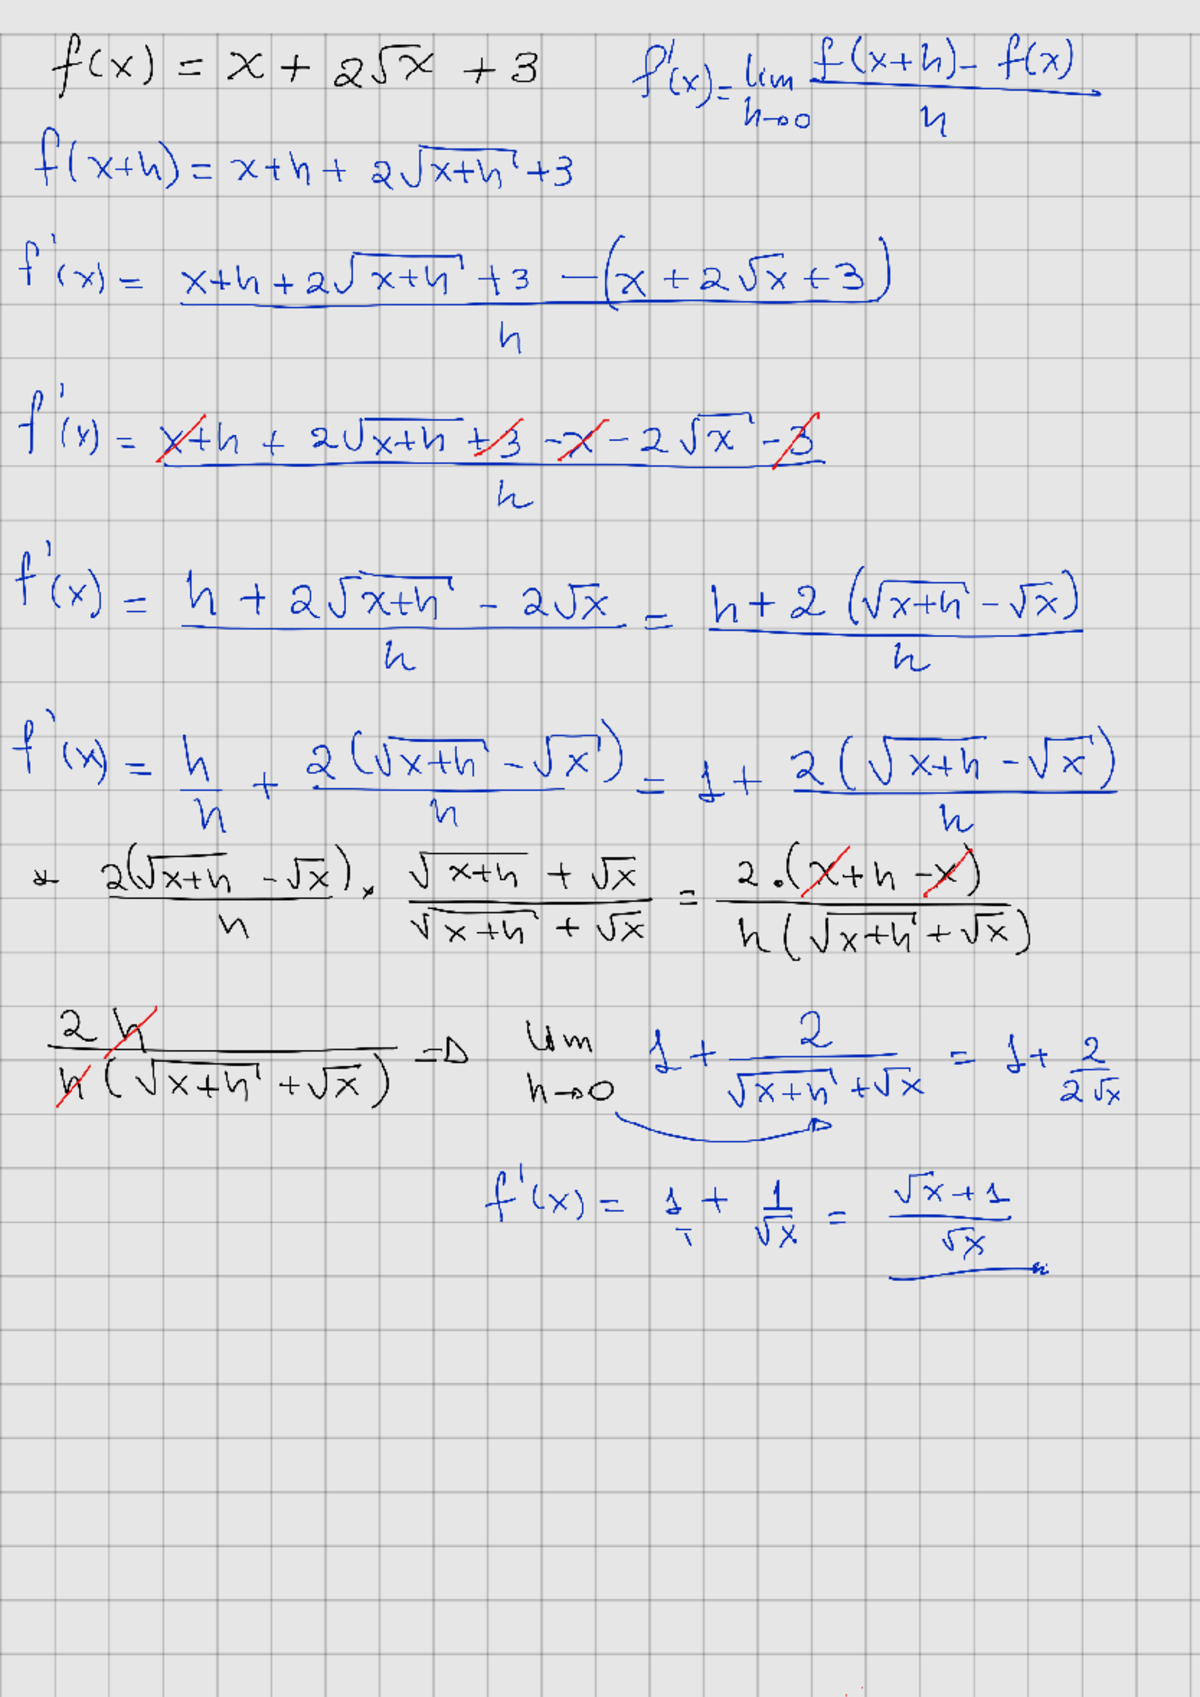 f(x) = x + 2√x + 3 f'(x) = lim h→0 (f(x+h) - f(x))/h
f(x+h) = x+h + 2√(x+h) + 3
f'(x) = (x+h + 2√(x+h) + 3 - (x + 2√x + 3))/h
f'(x) = (x+h + 2√(x+h) + 3 - x - 2√x - 3)/h
f'(x) = (h + 2√(x+h) - 2√x)/h = (h + 2(√(x+h) - √x))/h
f'(x) = h/h + 2(√(x+h) - √x)/h = 1 + 2(√(x+h) - √x)/h
* 2(√(x+h) - √x)/h . (√(x+h) + √x)/(√(x+h) + √x) = 2.(x+h-x)/(h(√(x+h) + √x))
2h/(h(√(x+h) + √x)) ⇒ lim h→0 1 + 2/(√(x+h) + √x) = 1 + 2/(2√x)
f'(x) = 1 + 1/√x = (√x + 1)/√x